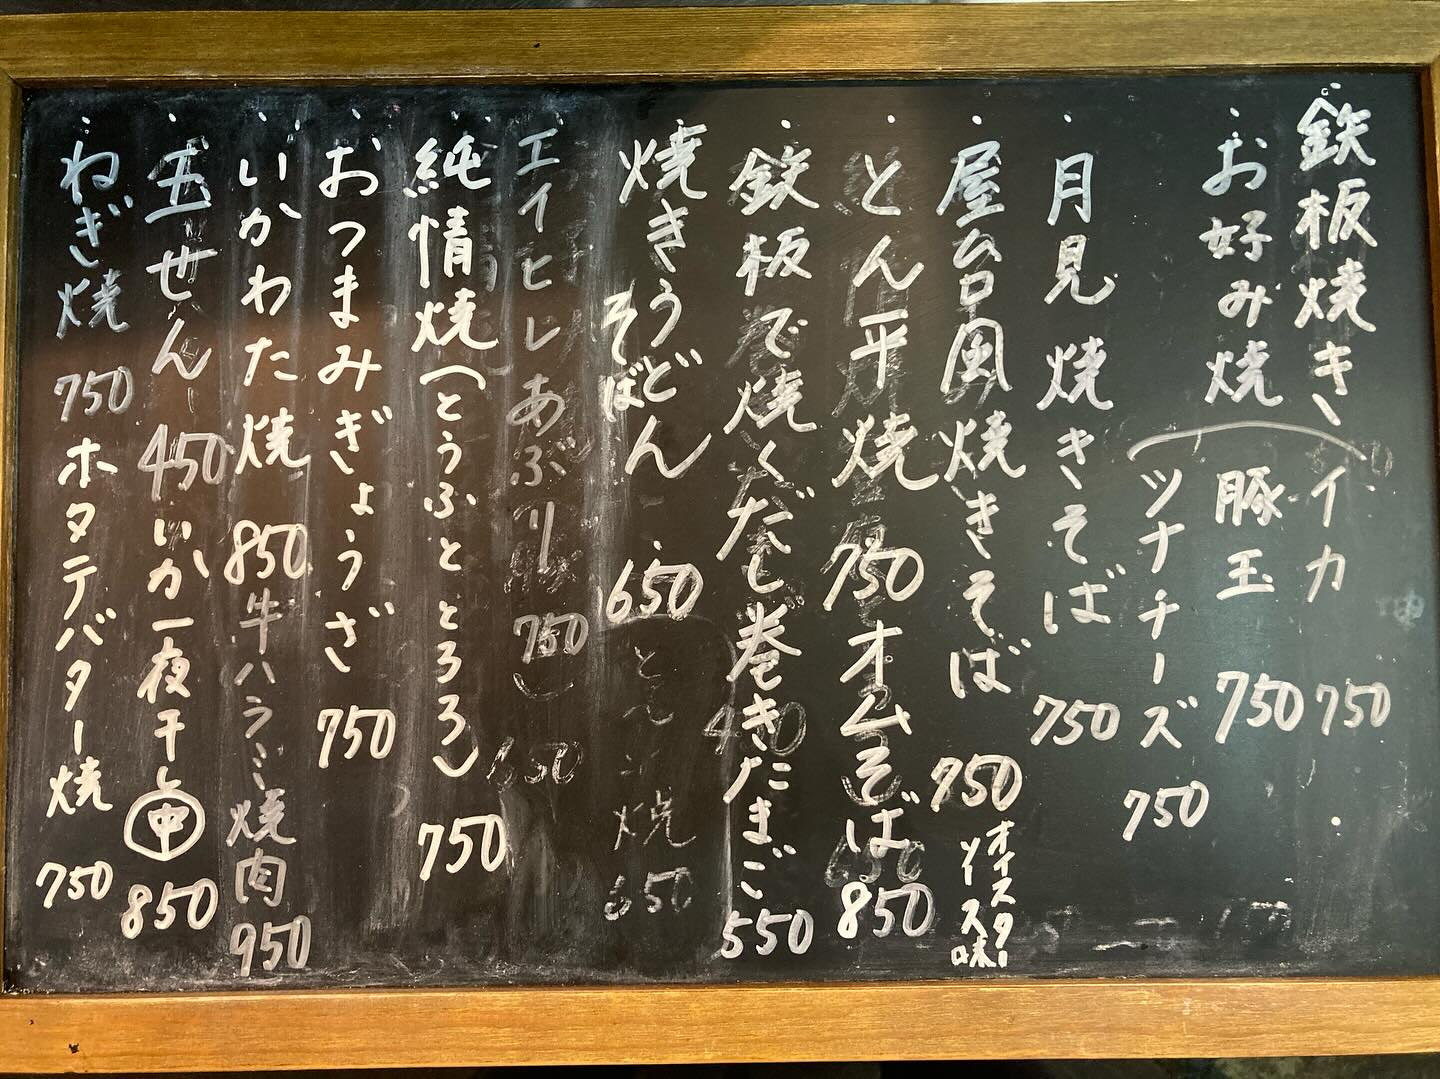 鉄板焼き イカ 750
お好み焼 豚玉 750
ツナチーズ 750
月見焼きそば 750
屋台風焼きそば 750 オイスターソース味
とん平焼 750 オムそば 850
鉄板で焼くだし巻きたまご 550
焼きうどん そば 650
エイヒレあぶり 750
純情焼(とうふととろろ) 750
おつまみぎょうざ 750
いかわた焼 850 牛ハラミ焼肉 950
五せん 450 いか一夜干し 中 850
ねぎ焼 750 ホタテバター焼 750